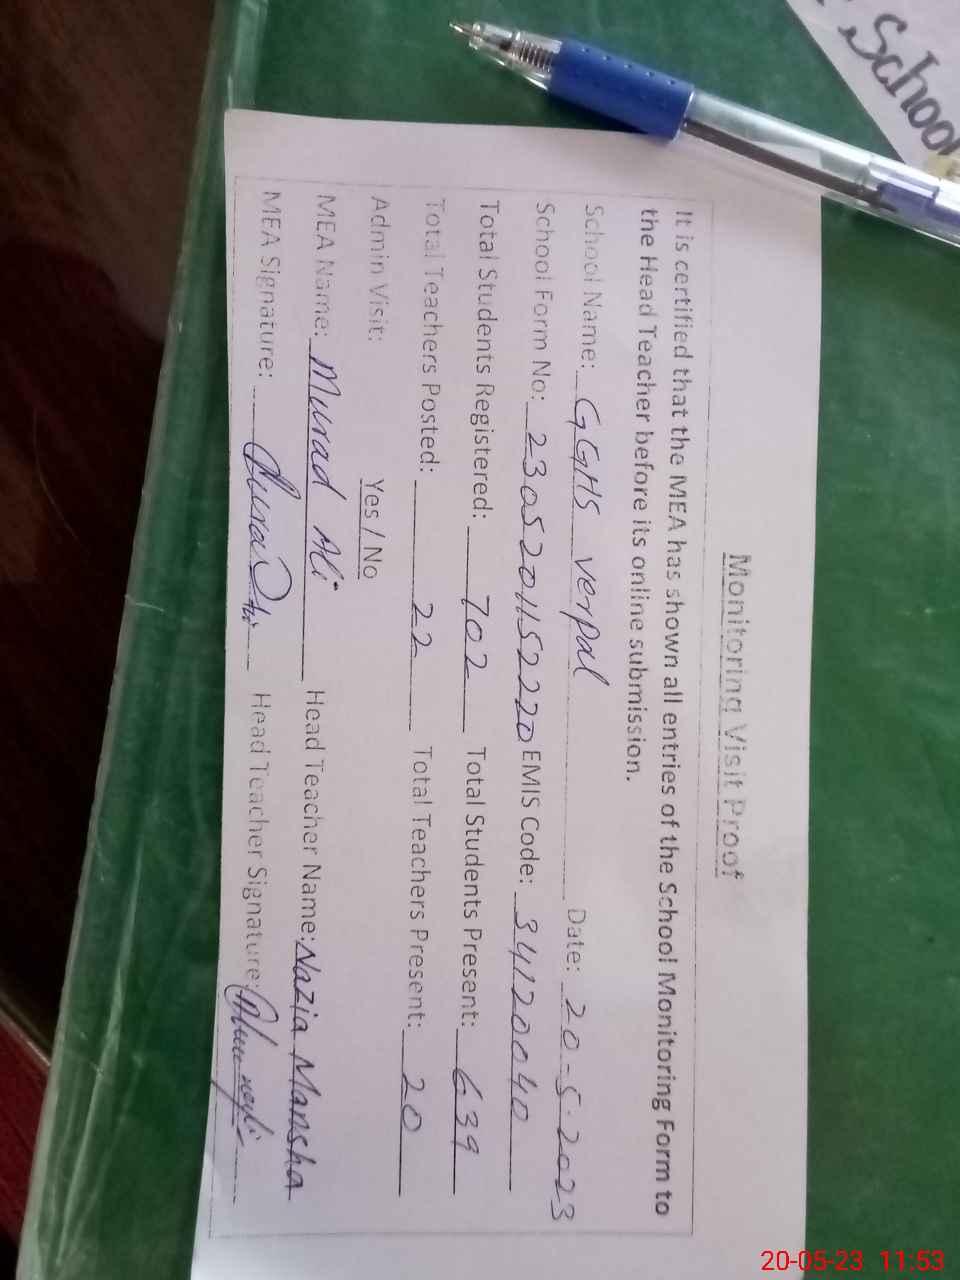 School
Monitoring Visit Proof
It is certified that the MEA has shown all entries of the School Monitoring Form to
the Head Teacher before its online submission.
School Name: GGHS verpal Date: 20-5-2023
School Form No: 2305201152220 EMIS Code: 34120040
Total Students Registered: 702 Total Students Present: 639
Total Teachers Posted: 22 Total Teachers Present: 20
Admin Visit: Yes / No
MEA Name: Murad Ali Head Teacher Name: Nazia Mansha
MEA Signature: Head Teacher Signature:
20-05-23 11:53